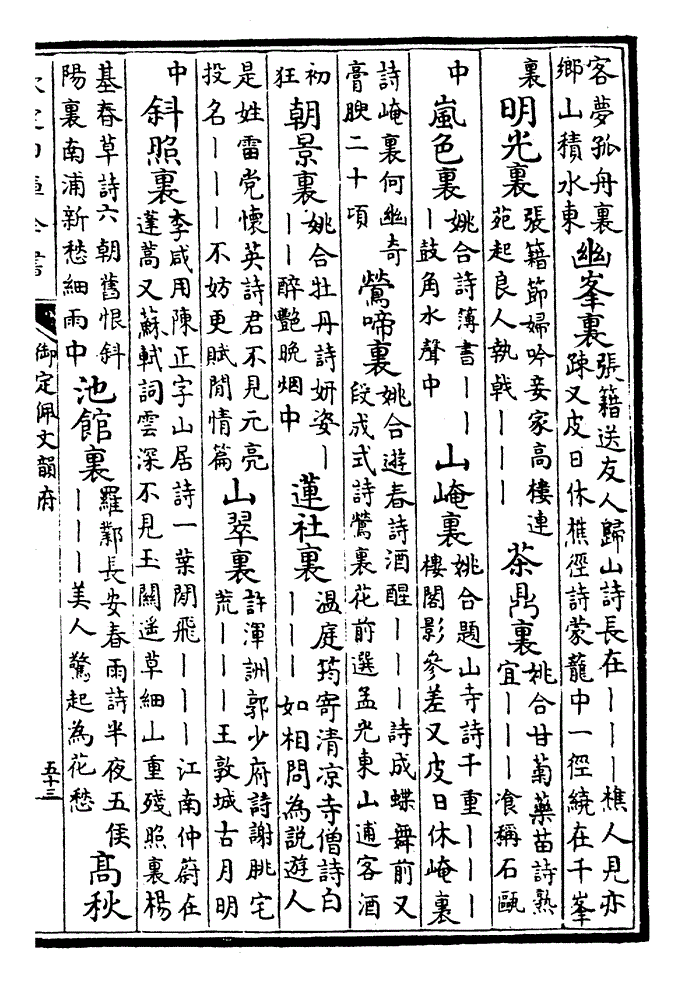 客夢孤舟裏鄉山積水東 幽峯裏 張籍送友人歸山詩長在｜｜｜樵人見亦踈又皮日休樵徑詩蒙蘢中一徑繞在千峯
裏 明光裏 張籍節婦吟妾家高樓連苑起良人執戟｜｜｜ 茶鼎裏 姚合甘菊藥苗詩熟宜｜｜｜飡稱石甌
中 嵐色裏 姚合詩簿書｜｜｜鼓角水聲中 山崦裏 姚合題山寺詩千重｜｜｜樓閣影參差又皮日休崦裏
詩崦裏何幽奇膏腴二十頃 鶯啼裏 姚合遊春詩酒醒｜｜｜詩成蝶舞前又段成式詩鶯裏花前選孟光東山逋客酒
初狂 朝景裏 姚合牡丹詩妍姿｜｜｜醉艷晚烟中 蓮社裏 温庭筠寄清凉寺僧詩白｜｜｜如相問為説遊人
是姓雷党懷英詩君不見元亮投名｜｜｜不妨更賦閒情篇 山翠裏 許渾詶郭少府詩謝朓宅荒｜｜｜王敦城古月明
中 斜照裏 李咸用陳正字山居詩一葉閒飛｜｜｜江南仲蔚在蓬蒿又蘇軾詞雲深不見玉關遥草細山重殘照裏楊
基春草詩六朝舊恨斜陽裏南浦新愁細雨中 池館裏 羅鄴長安春雨詩半夜五侯｜｜｜美人驚起為花愁 高秋
欽定四庫全書 御定佩文韻府 五十三